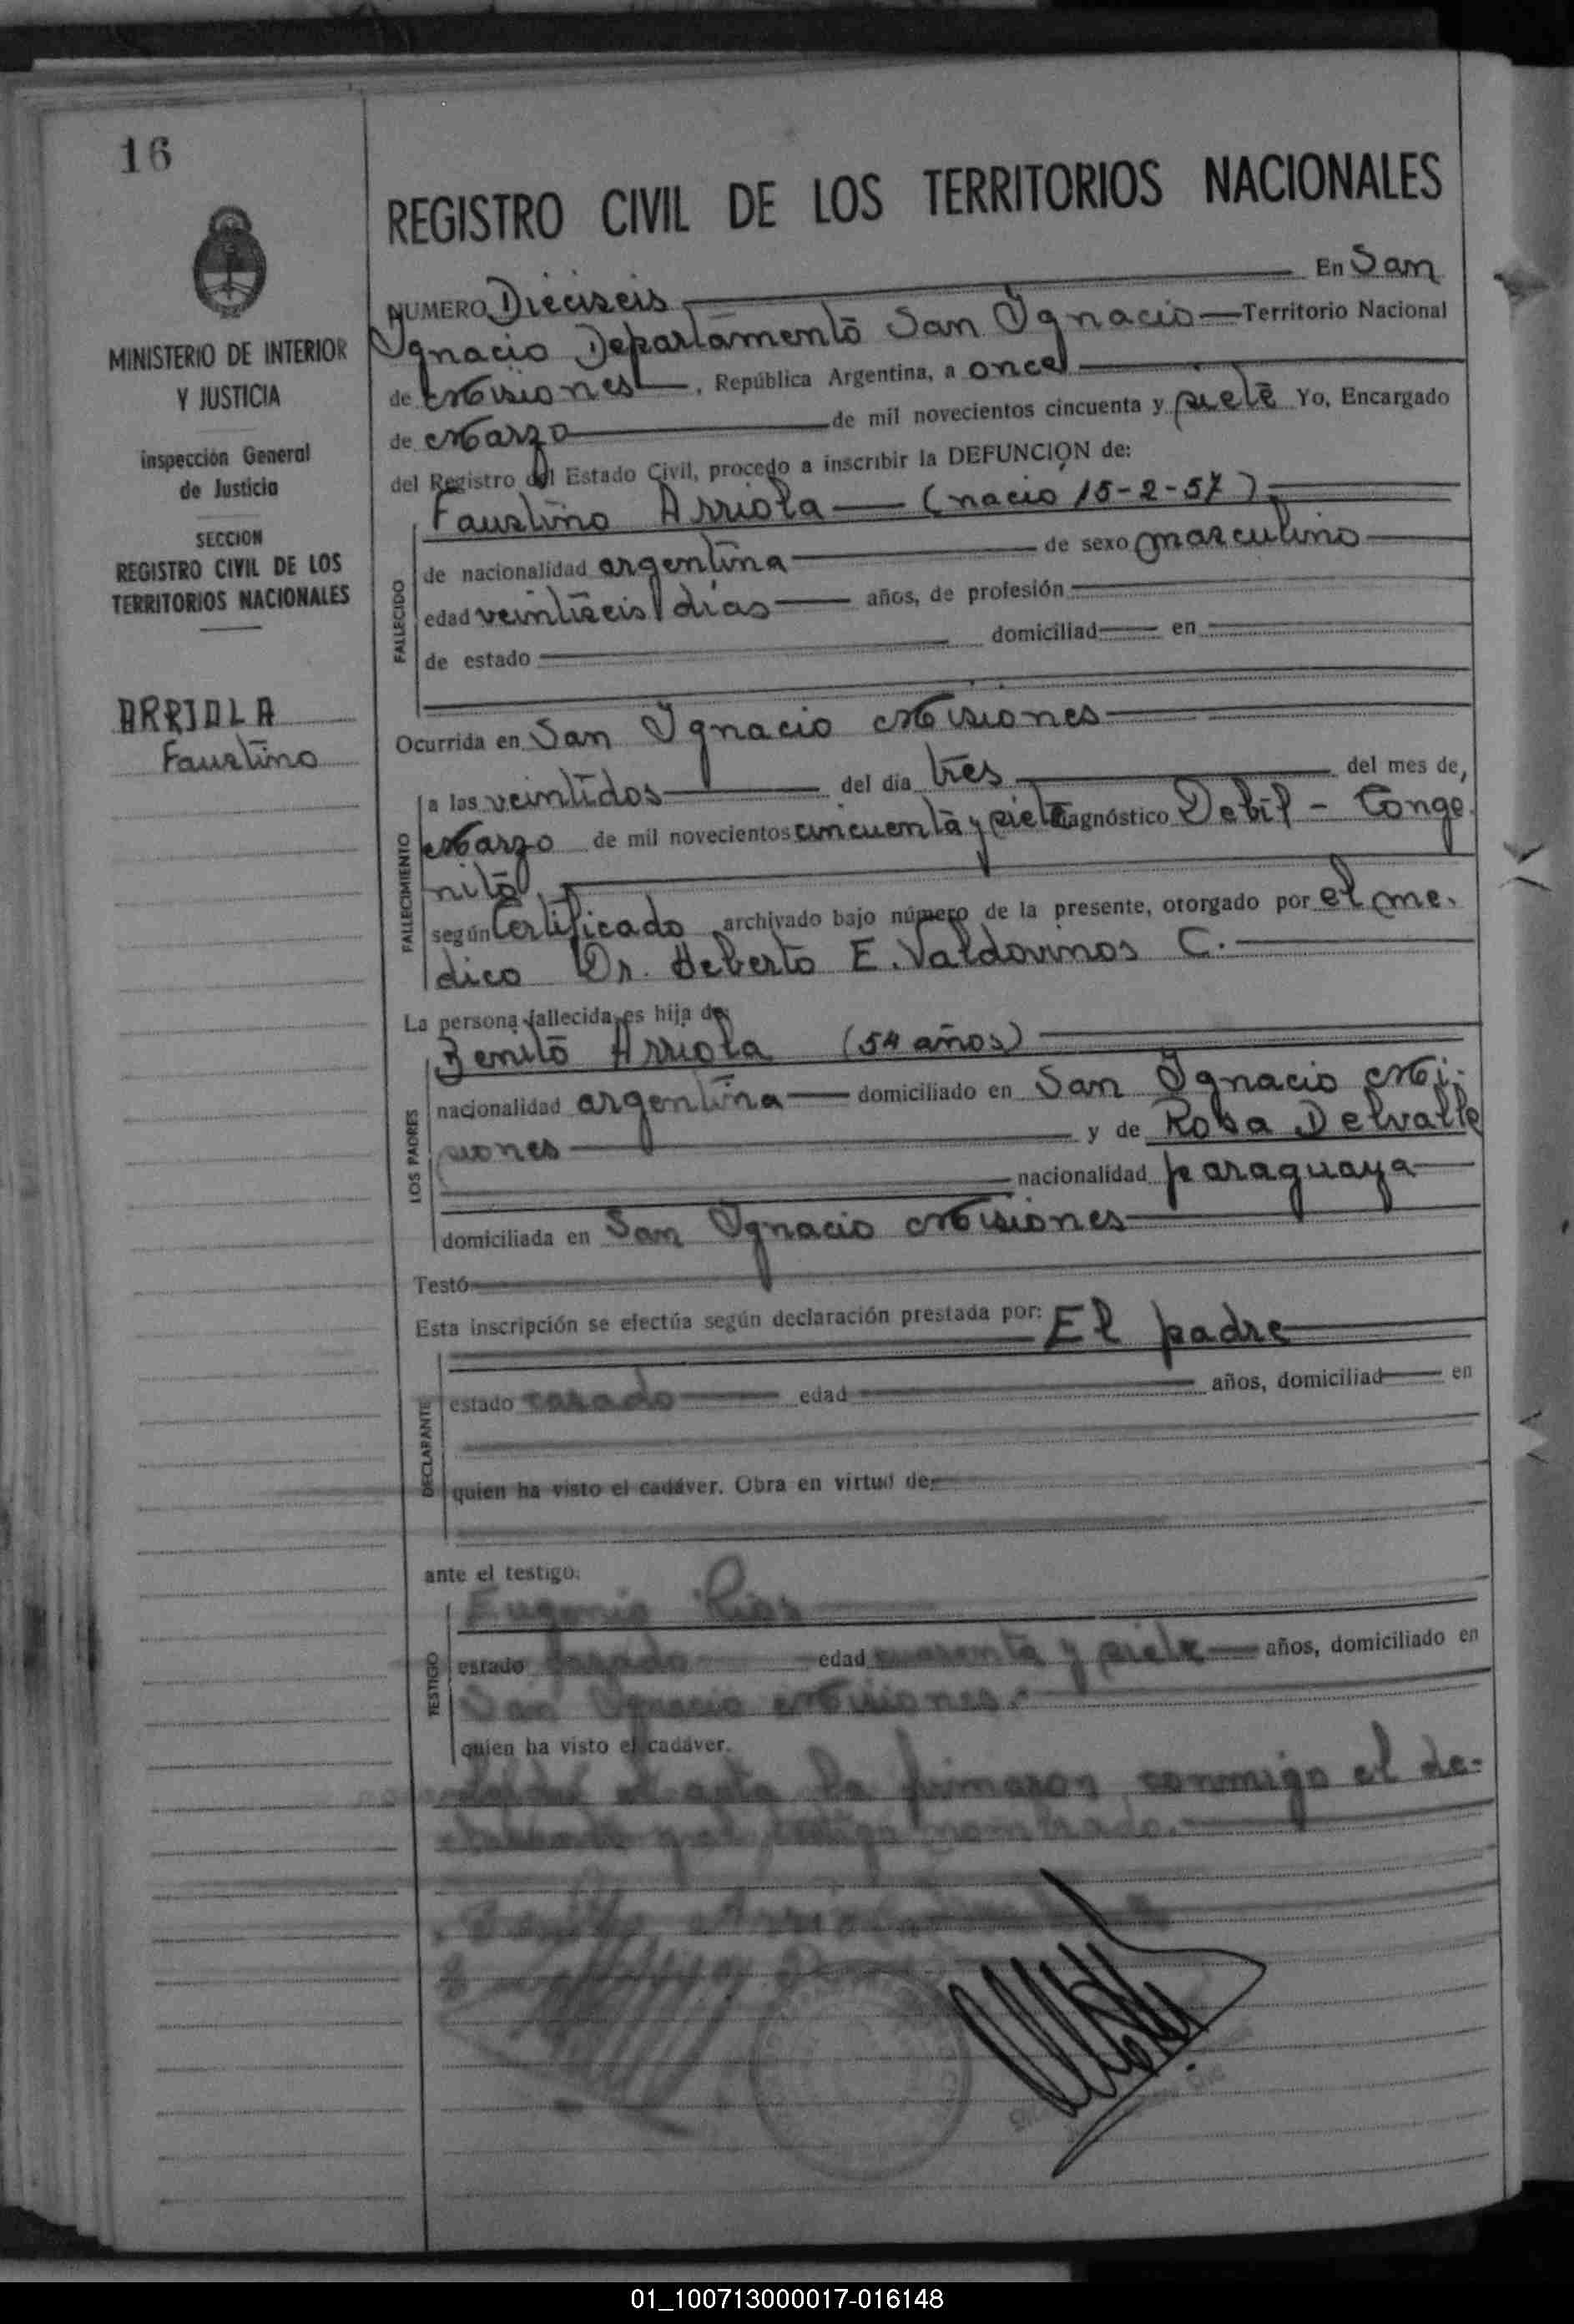 16
MINISTERIO DE INTERIOR
Y JUSTICIA
Inspección General
de Justicia
SECCION
REGISTRO CIVIL DE LOS
TERRITORIOS NACIONALES
ARRIOLA
Faustino
REGISTRO CIVIL DE LOS TERRITORIOS NACIONALES
NUMERO Dieciseis En San
Ignacio Departamento San Ignacio Territorio Nacional
de Misiones, República Argentina, a once
de Marzo de mil novecientos cincuenta y siete Yo, Encargado
del Registro del Estado Civil, procedo a inscribir la DEFUNCION de:
Faustino Arriola (nació 15-2-57)
FALLECIDO
de nacionalidad argentina de sexo masculino
edad veintiseis días años, de profesión
de estado domiciliad en
Ocurrida en San Ignacio Misiones
FALLECIMIENTO
a las veintidos del día tres del mes de,
Marzo de mil novecientos cincuenta y siete diagnóstico Debil - Conge
nito
según Certificado archivado bajo número de la presente, otorgado por el me.
dico Dr. Heberto E. Valdovinos C.
La persona fallecida es hija de
LOS PADRES
Benito Arriola (54 años)
nacionalidad argentina domiciliado en San Ignacio Mi-
siones y de Rosa Delvalle
nacionalidad paraguaya
domiciliada en San Ignacio Misiones
Testó
Esta inscripción se efectúa según declaración prestada por: El padre
DECLARANTE
estado casado edad años, domiciliad en
quien ha visto el cadáver. Obra en virtud de
ante el testigo:
TESTIGO
Eugenio Rios
estado casado edad cuarenta y siete años, domiciliado en
San Ignacio Misiones.-
quien ha visto el cadáver.
el acta la firmaron conmigo el de-
clarante y el testigo nombrado.
Benito Arriola
01_100713000017-016148